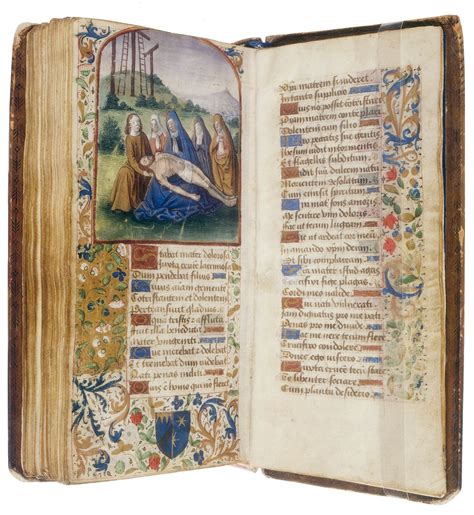 Stabat mater dolorosa
Iuxta cruce lacrimosa
Dum pendebat filius
Cuius aiam gementem
Cotristantem et dolentem
Pertransiuit gladius
O qua tristis et afflicta
fuit illa benedicta
Mater vnigeniti
Que merebat et dolebat
Et tremebat dum uidebat
Nati penas incliti
Quis e homo qui no fleret
Xpi matrem si uideret
In tanto supplicio
Quis non posset cotristari
piam matrem contemplari
Dolentem cum filio
Pro peccatis sue gentis
Jesum uidit in tormentis
Et flagellis subditum
Vidit suu dulcem natum
Morientem desolatum
Dum emisit spiritum
Eia mater fons amoris
Me sentire vim doloris
fac ut tecum lugeam
fac ut ardeat cor meu
In amando xpm deum
Ut sibi complaceam
Sancta mater istud agas
Crucifixi fige plagas
Cordi meo valide
Tui nati vulnerati
Iam dignatus pro me pati
Penas pro me diuide
fac me vere tecum flere
Crucifixo condolere
Donec ego vixero
Iuxta crucem tecum stare
Te libenter sociare
Cum planctu desidero